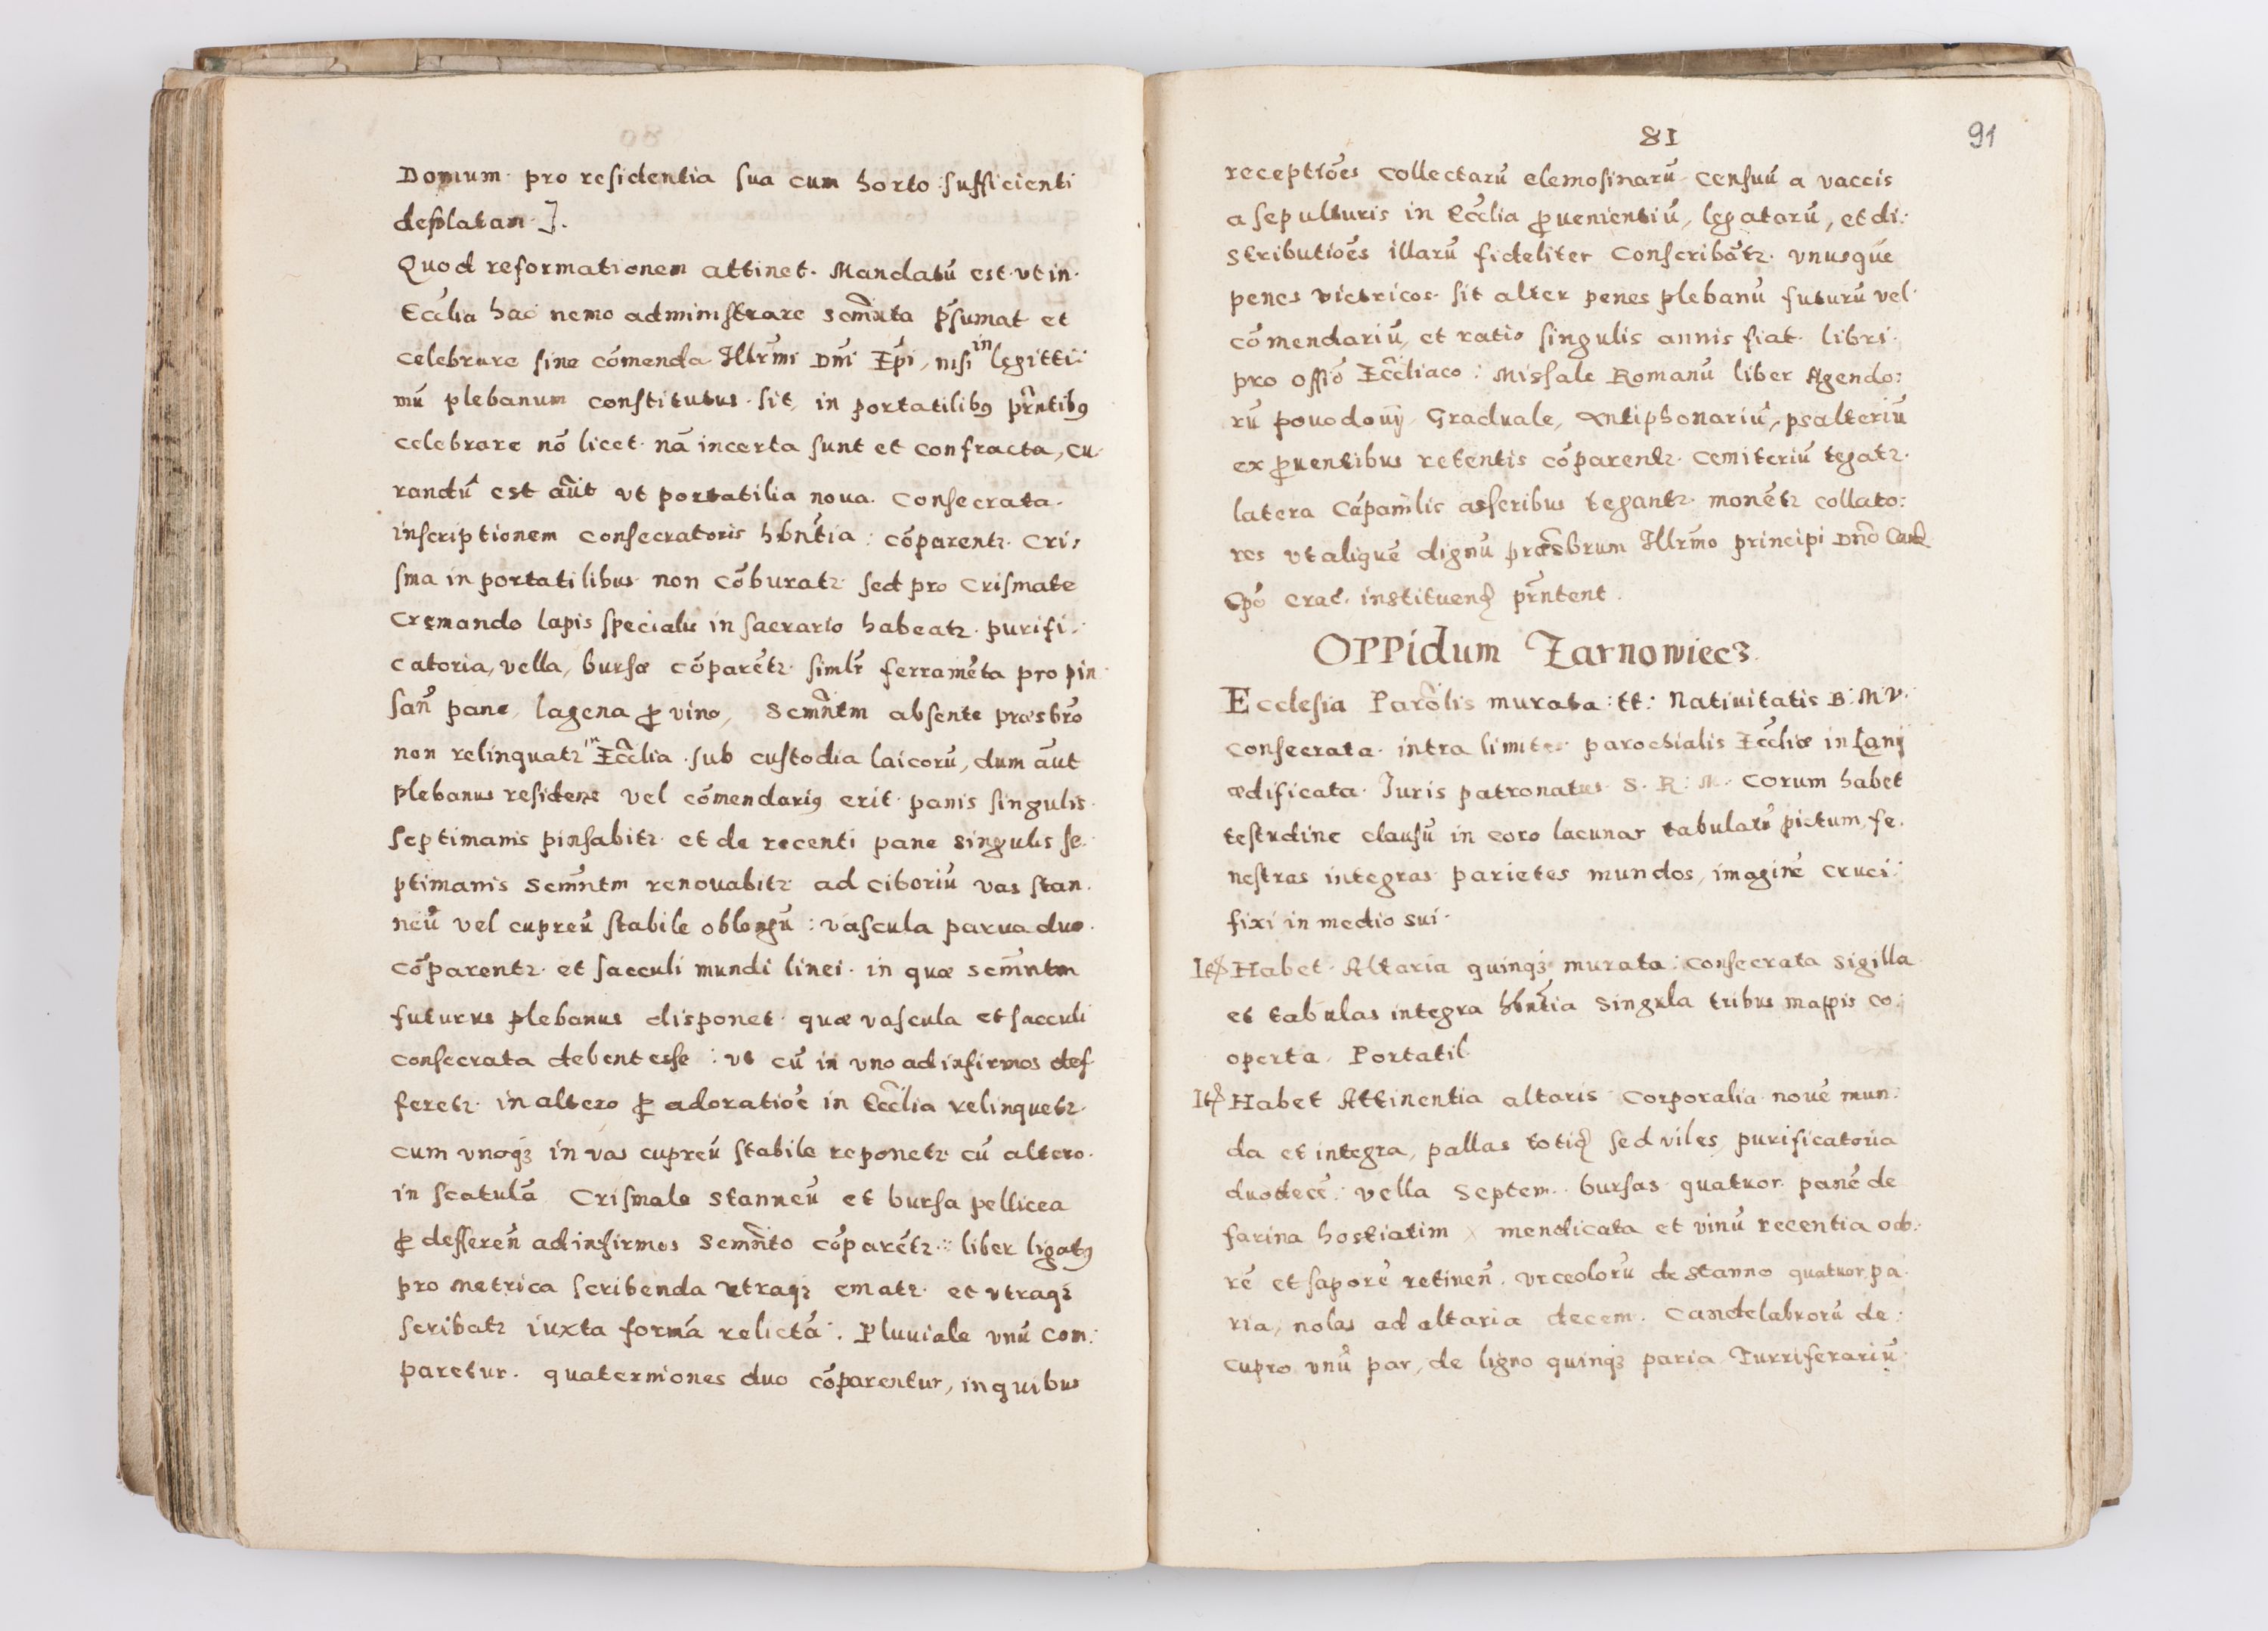 Domum pro residentia sua cum horto sufficienti
desolatam ].
Quod reformationem attinet. Mandatū est vt in
Eccl̄ia hac nemo administrare scm̄nta p̄sumat et
celebrare sine cōmenda Illr̄mi Dn̄i Ep̄i, nisi in legitti:
mū plebanum constitutus sit, in portatilibꝯ pr̄ntibꝯ
celebrare nō licet nā incerta sunt et confracta, cu
randū est aūt vt portatilia noua consecrata
inscriptionem consecratoris hbn̄tia: cōparentꝛ. Cri,
sma in portatilibus non cōburatꝛ sed pro Crismate
cremando lapis specialis in sacrario habeatꝛ. purifi:
catoria, vella, bursæ cōparētꝛ siml̄r ferramēta pro pin
san̄ pane, lagena ꝓ vino, Scmn̄tm absente præsbr̄o
non relinquatꝛ in Eccl̄ia sub custodia laicorū, dum aūt
plebanus residens vel cōmendariꝯ erit panis singulis
septimanis pinsabitꝛ et de recenti pane singulis se
ptimanis Scmn̄tm renouabitꝛ ad ciboriū vas stan
neū vel cupreū stabile oblongū: vascula parua duo
cōparentꝛ et sacculi mundi linei in quæ scmn̄tm
futurus plebanus disponet quæ vascula et sacculi
consecrata debent esse: vt cū in vno ad infirmos def
feretꝛ in altero ꝓ adoratiōe in Eccl̄ia relinquetꝛ
cum vnoqꝫ in vas cupreū stabile reponetꝛ cū altero
in scatulā Crismale stanneū et bursa pellicea
ꝓ defferen̄ ad infirmos Scmn̄to cōparētꝛ: liber ligatꝯ
pro metrica scribenda vtraqꝫ ematꝛ et vtraqꝫ
scribatꝛ iuxta formā relictā. Pluuiale vnū com:
paretur. quaterniones duo cōparentur, in quibus
81
91
receptiōes collectarū elemosinarū censuū a vaccis
a sepulturis in Eccl̄ia ꝓuenientiū, legatarū, et di:
stributiōes illarū fideliter conscribātꝛ vnusque
penes vietricos sit alter penes plebanū futurū vel
cōmendariū, et ratio singulis annis fiat libri
pro offiō Eccl̄iaco: Missale Romanū liber Agendo:
rū Graduale, Antiphonariū, psalteriū
ex ꝓuentibus retentis cōparentꝛ cemiteriū tegatꝛ
latera Cāpanilis asseribus tegantꝛ monētꝛ collato:
res vt aliquē dignū præsbrum Illr̄mo principi Dn̄o Card
Epō Crac. instituend pr̄ntent.
OPPidum Zarnowiecz
Ecclesia Parōlis murata: tt: Natiuitatis B: M V:
consecrata intra limites parochialis Eccl̄iæ in Lany
ædificata Iuris patronatus S. R: M. Corum habet
testudine clausū in coro lacunar tabularū pictum, fe
nestras integras parietes mundos, imaginē cruci:
fixi in medio sui.
Itē Habet Altaria quinqꝫ murata: consecrata sigilla
et tabulas integra hbn̄tia singula tribus mappis co:
operta. Portatil
Itē Habet Attinentia altaris Corporalia nouē mun:
da et integra, pallas totiđ sed viles, purificatoria
duodecē: vella septem. bursas quatuor. panē de
farina hostiatim mendicata et vinū recentia odo:
rē et saporē retinen̄. vrceolorū de stanno quatuor pa
ria, nolas ad altaria decem. Candelabrorū de:
cupro vnū par, de ligno quinqꝫ paria Turriferariū